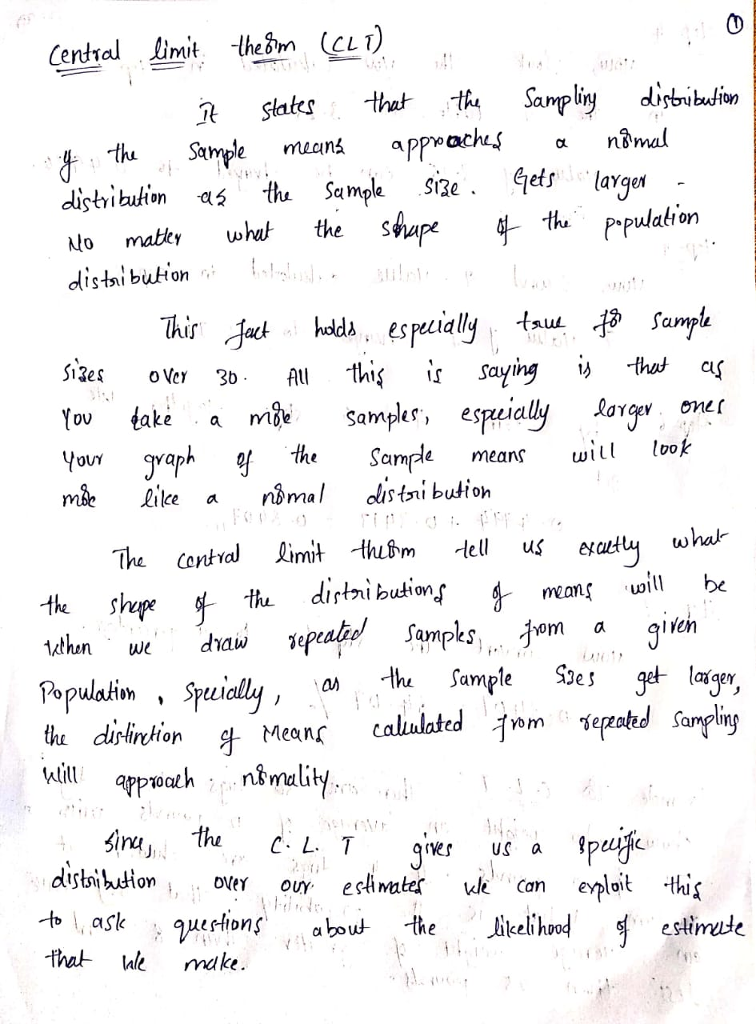 ①
Central limit theorm (CLT)
It states that the Sampling distribution
of the Sample means approaches a normal
distribution as the Sample size. Gets larger -
No matter what the shape of the population
distribution
This fact holds especially true for sample
sizes over 30. All this is saying is that as
You take a more samples, especially larger ones
Your graph of the Sample means will look
more like a normal distribution
The central limit theorm tell us exactly what
the shape of the distributions of means will be
When we draw repeated samples from a given
Population, Specially, as the Sample Sizes get larger,
the distinction of Means calculated from repeated Sampling
Will approach normality.
Since, the C. L. T gives us a specific
distribution over our estimates We can exploit this
to ask questions about the likelihood of estimate
that We make.